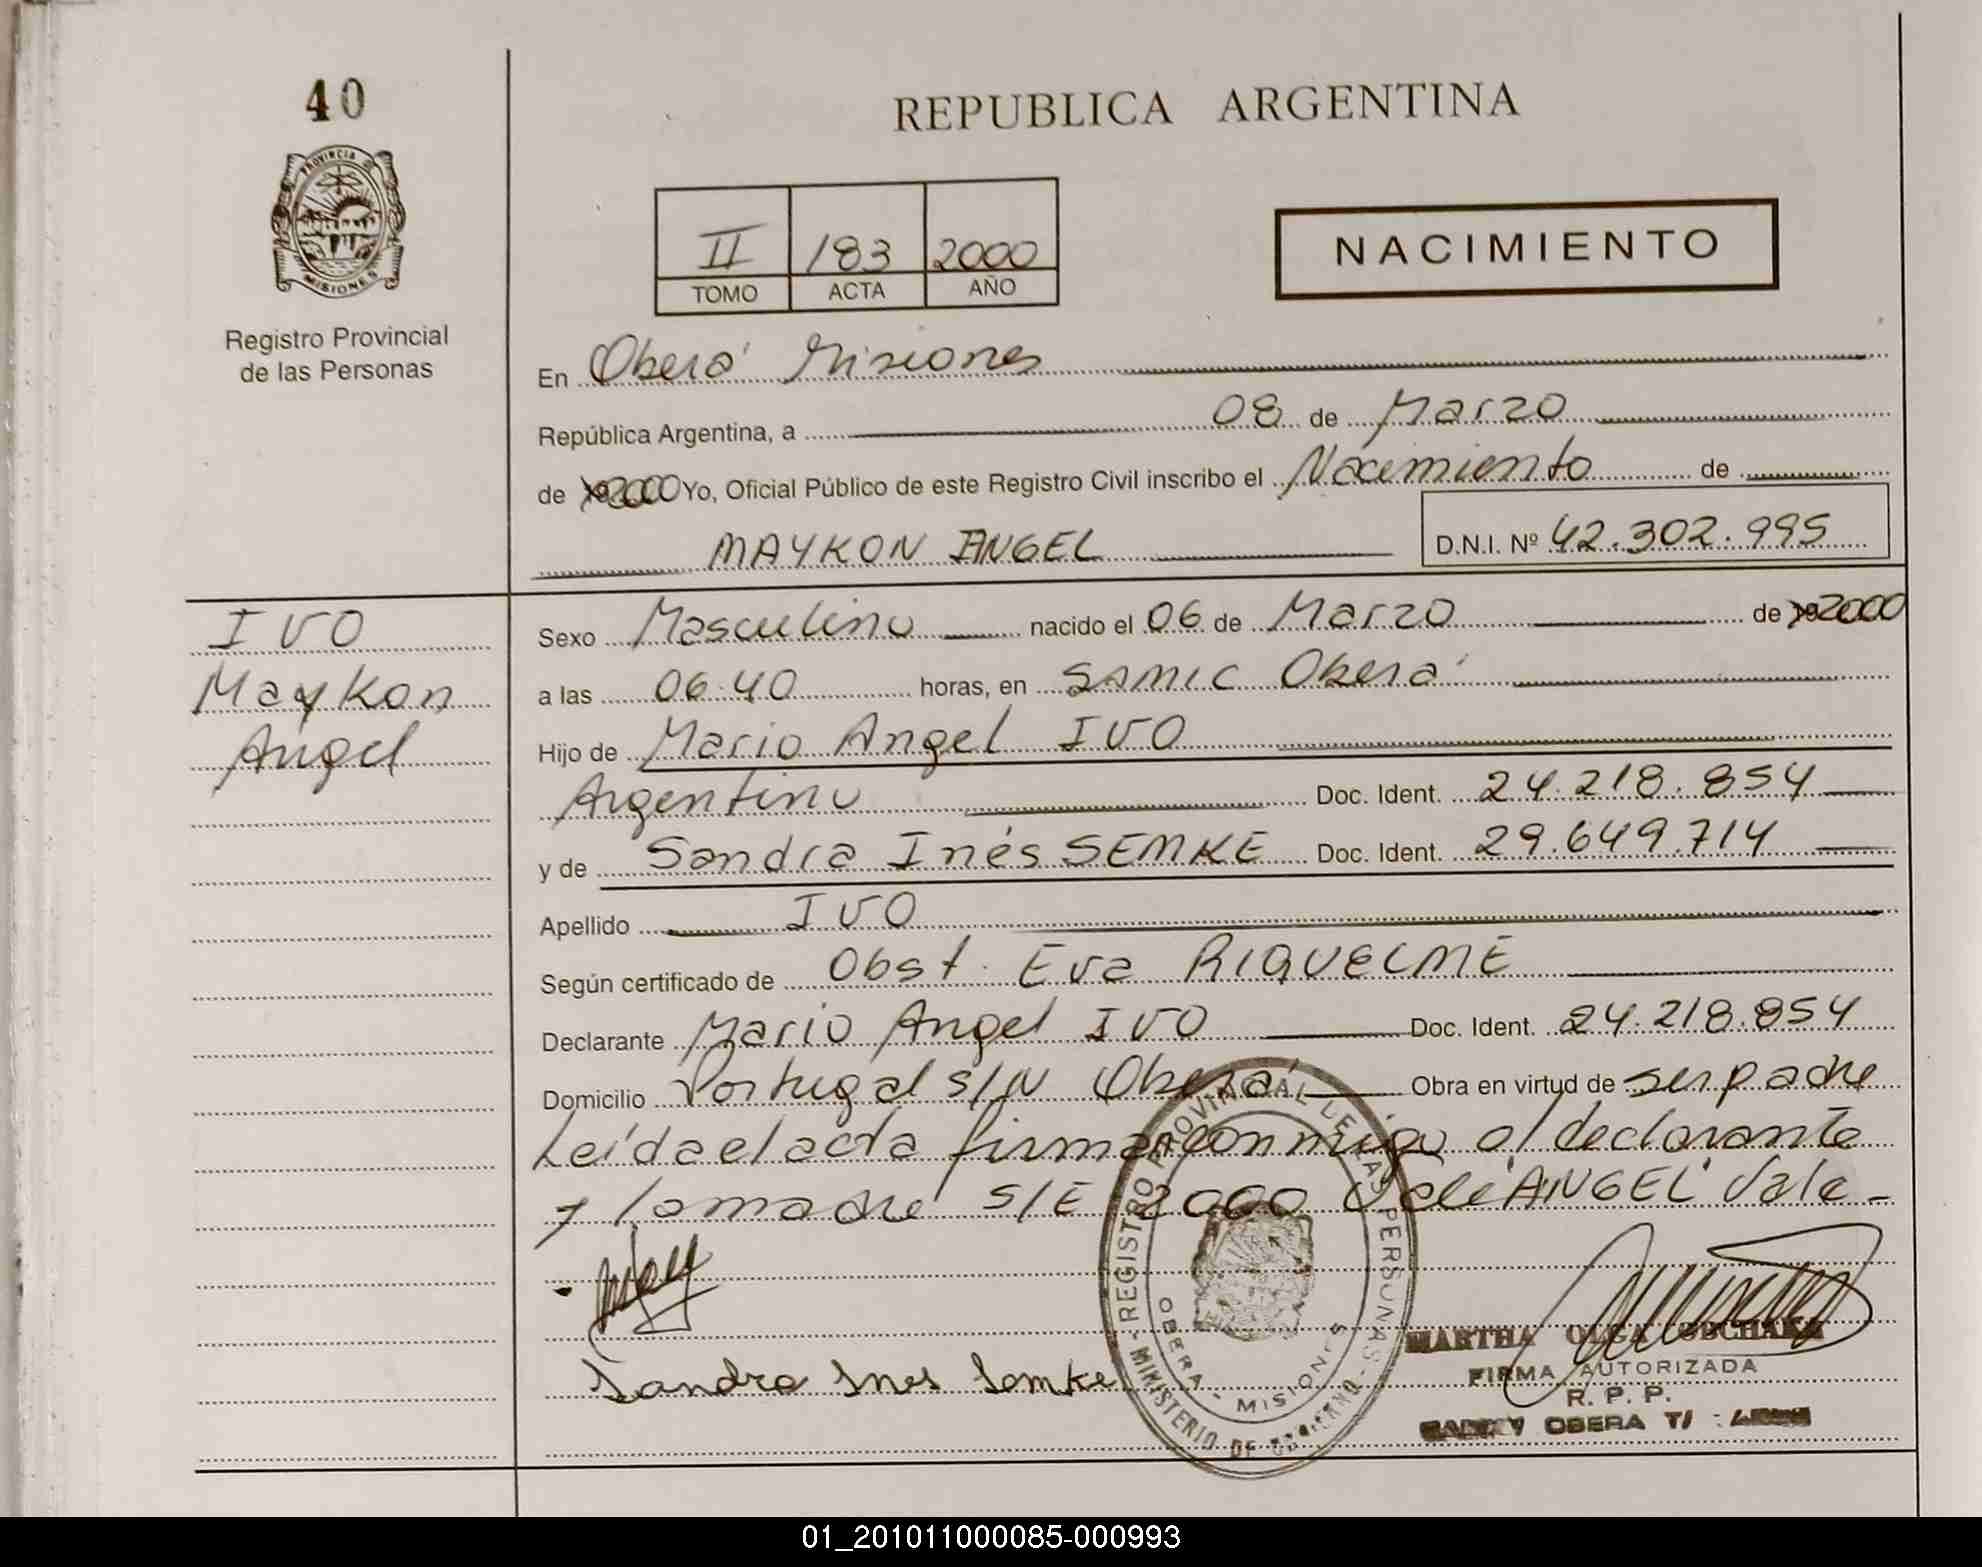 40
PROVINCIA DE
MISIONES
Registro Provincial
de las Personas
REPUBLICA ARGENTINA
II 183 2000
TOMO ACTA AÑO
NACIMIENTO
En Oberá Misiones
República Argentina, a 08 de Marzo
de 2000 Yo, Oficial Público de este Registro Civil inscribo el Nacimiento de
MAYKON ANGEL D.N.I. Nº 42.302.995
IVO
Maykon
Angel
Sexo Masculino nacido el 06 de Marzo de 2000
a las 06:40 horas, en SAMIC Oberá
Hijo de Mario Angel IVO
Argentino Doc. Ident. 24.218.854
y de Sandra Inés SEMKE Doc. Ident. 29.649.714
Apellido IVO
Según certificado de Obst. Eva RIQUELME
Declarante Mario Angel IVO Doc. Ident. 24.218.854
Domicilio Portugal s/N Oberá Obra en virtud de ser padre
Leída el acta firman conmigo el declarante
y la madre S/E 2000 Vale "ANGEL" Vale -
Sandra Ines Semke
REGISTRO PROVINCIAL DE LAS PERSONAS
MINISTERIO DE GOBIERNO
OBERA - MISIONES
MARTHA OLGA
FIRMA AUTORIZADA
R. P. P.
OBERA
01_201011000085-000993